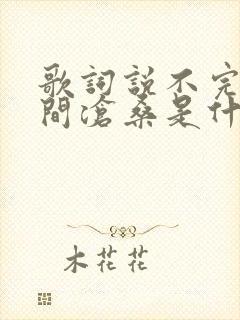 歌詞説不完
間滄桑是什
木花花